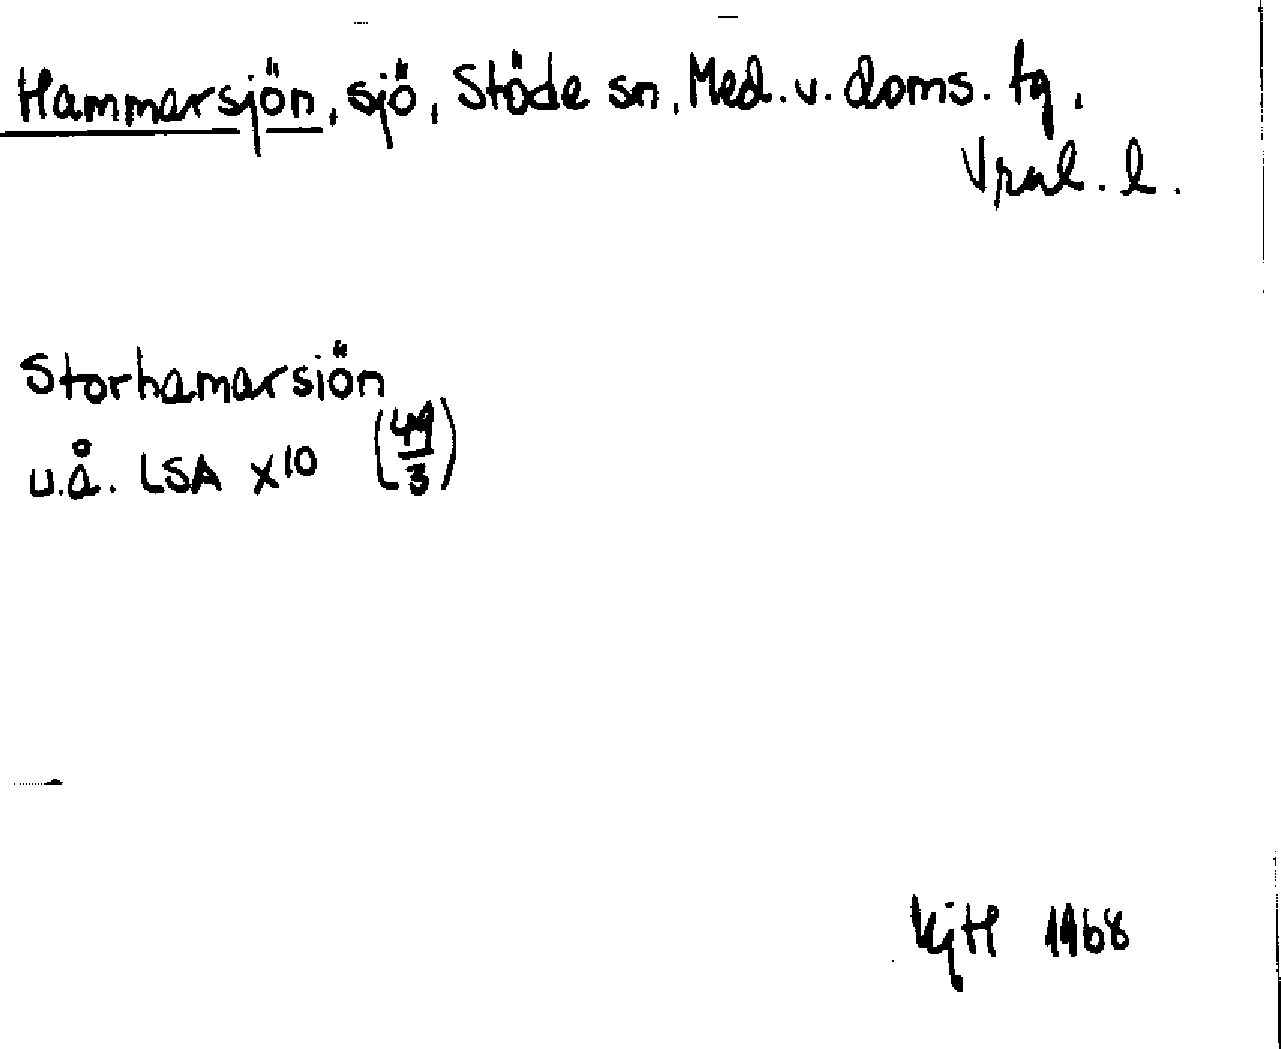 Hammarsjön, sjö, Stöde sn, Med. v. doms. tg,
Vrnl. l.
Storhamarsiön
u.å. LSA X10 (49/3)
KjH 1968